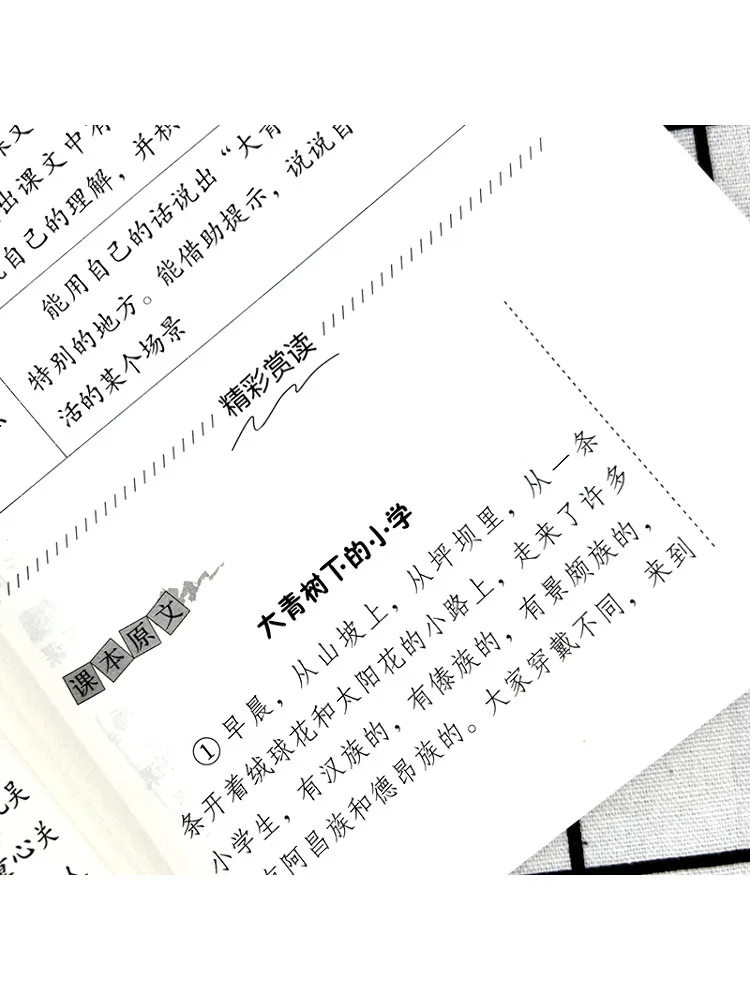 出课文中有
自己的理解，并积
能用自己的话说出“大青
特别的地方。能借助提示，说说自
活的某个场景
精彩赏读
课本原文
大青树下的小学
①早晨，从山坡上，从坪坝里，从一条
条开着绒球花和太阳花的小路上，走来了许多
小学生，有汉族的，有傣族的，有景颇族的，
有阿昌族和德昂族的。大家穿戴不同，来到
吴
心关
人